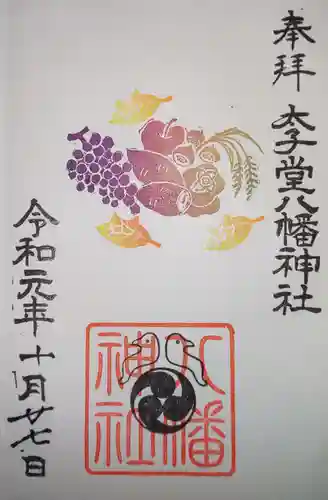 奉拝
太子堂八幡神社
八幡
神社
令和元年十月廿七日